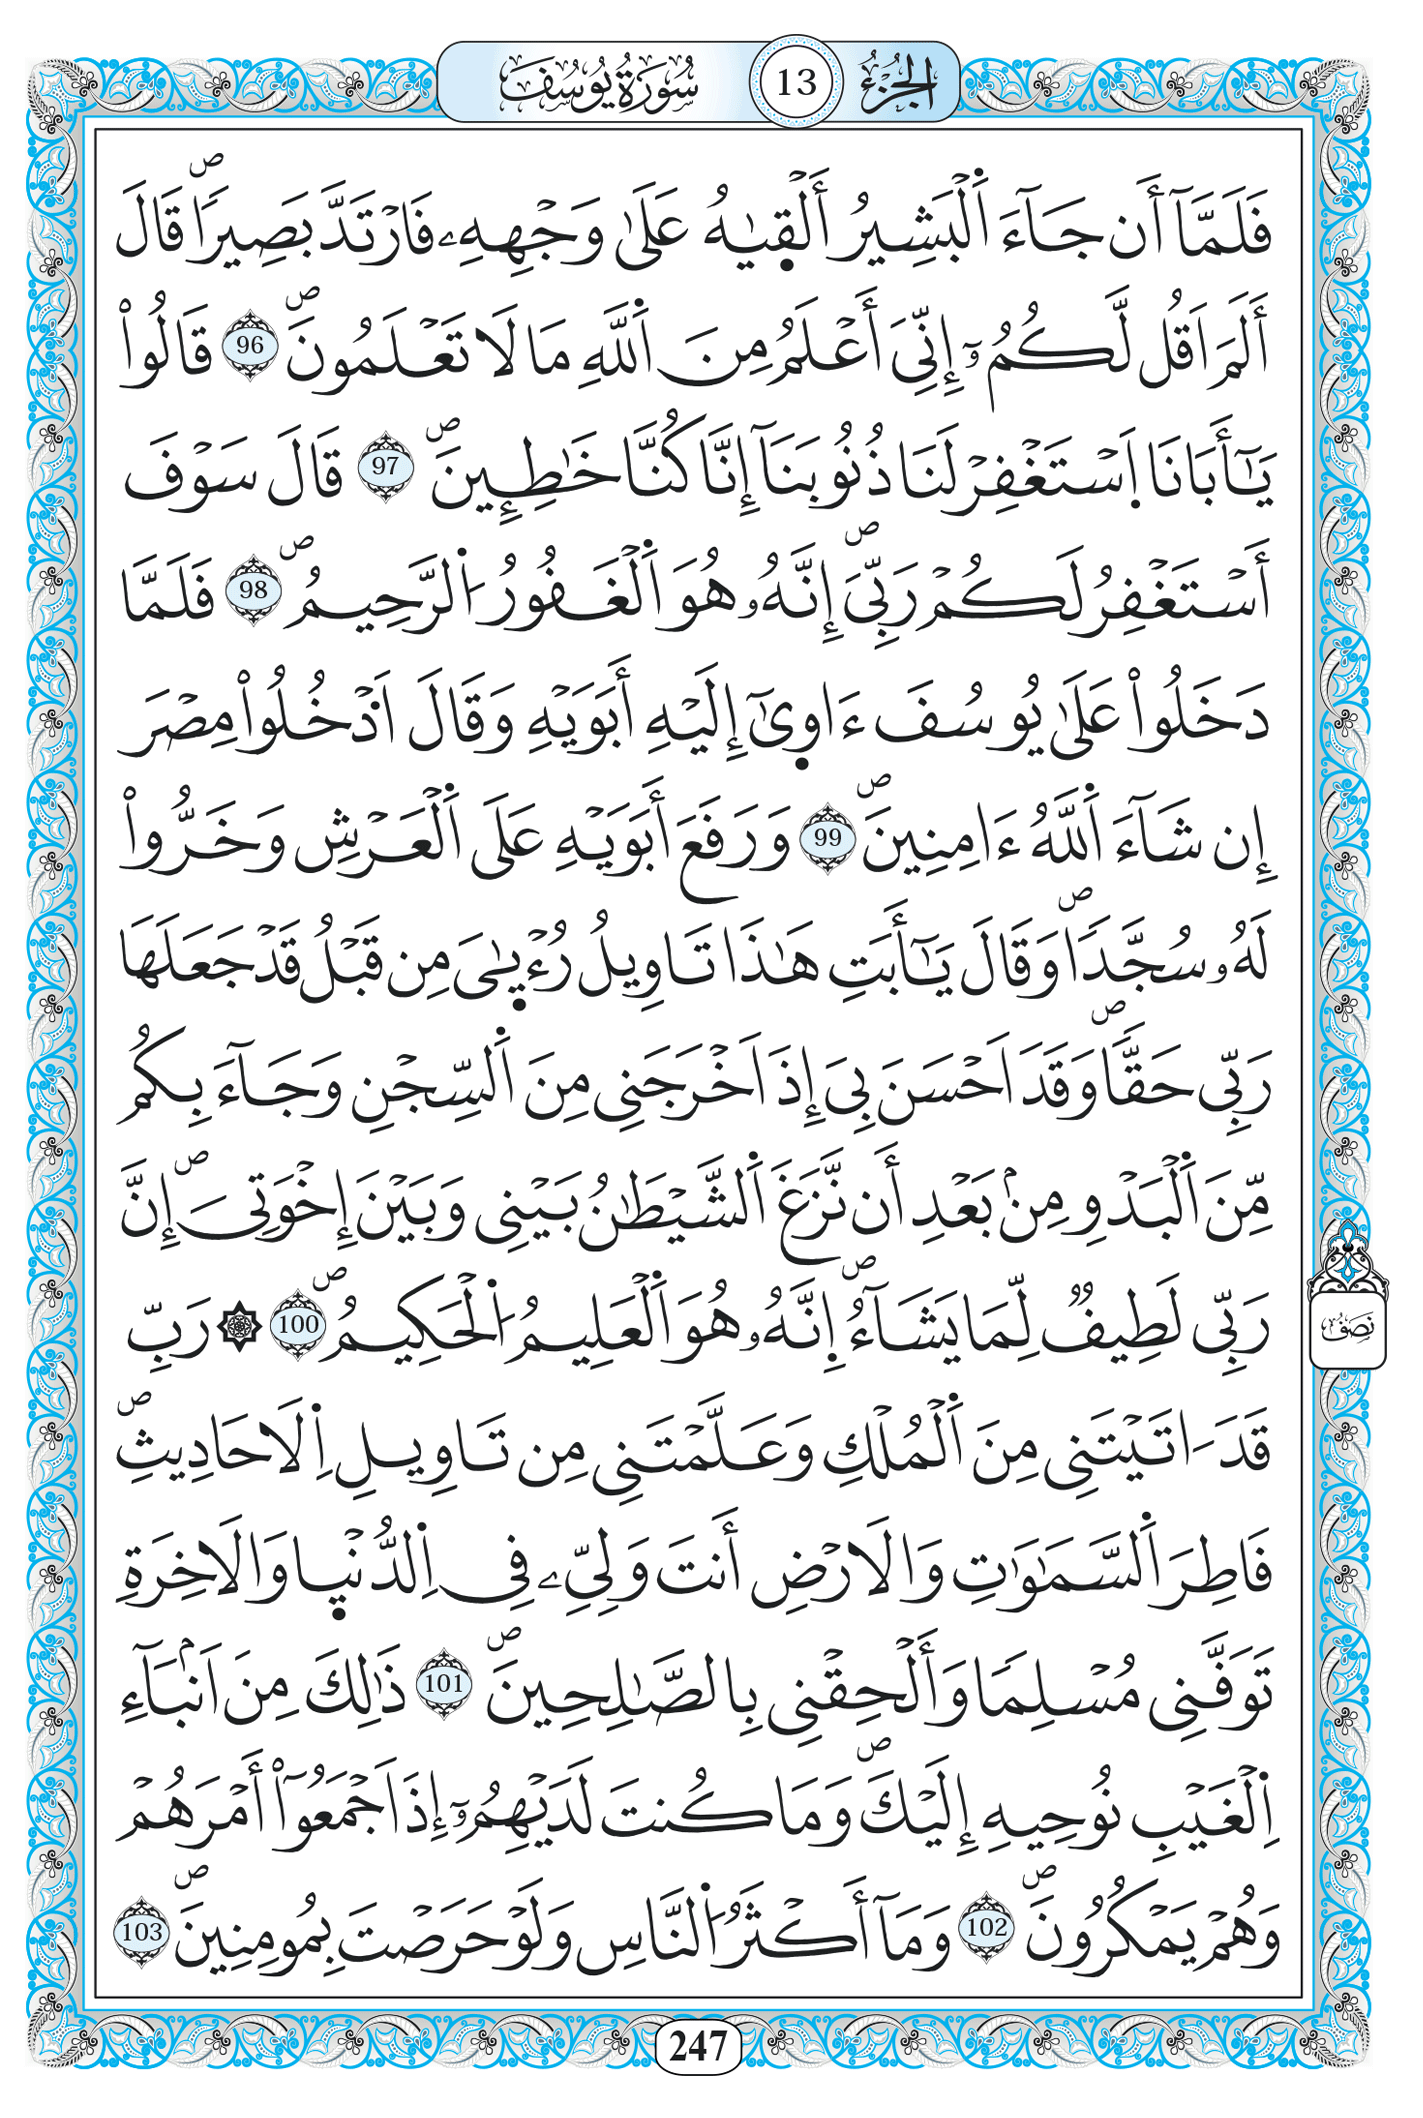 الجُزْءُ 13 سُورَةُ يُوسُفَ
فَلَمَّآ أَن جَآءَ اَ۬لْبَشِيرُ أَلْق۪يٰهُ عَلَىٰ وَجْهِهِۦ فَارْتَدَّ بَصِيراٗۖ قَالَ
أَلَمَ اَقُل لَّكُمُۥٓ إِنِّيَ أَعْلَمُ مِنَ اَ۬للَّهِ مَا لَا تَعْلَمُونَۖ 96 قَالُواْ
يَٰٓأَبَانَا اَ۪سْتَغْفِرْ لَنَا ذُنُوبَنَآ إِنَّا كُنَّا خَٰطِـِٕينَۖ 97 قَالَ سَوْفَ
أَسْتَغْفِرُ لَكُمْ رَبِّيَۖ إِنَّهُۥ هُوَ اَ۬لْغَفُورُ اُ۬لرَّحِيمُۖ 98 فَلَمَّا
دَخَلُواْ عَلَىٰ يُوسُفَ ءَاو۪ىٰٓ إِلَيْهِ أَبَوَيْهِ وَقَالَ اَ۟دْخُلُواْ مِصْرَ
إِن شَآءَ اَ۬للَّهُ ءَامِنِينَۖ 99 وَرَفَعَ أَبَوَيْهِ عَلَى اَ۬لْعَرْشِ وَخَرُّواْ
لَهُۥ سُجَّداٗۖ وَقَالَ يَٰٓأَبَتِ هَٰذَا تَاوِيلُ رُءْيٰ۪يَ مِن قَبْلُ قَدْ جَعَلَهَا
رَبِّي حَقّاٗۖ وَقَدَ اَحْسَنَ بِيَ إِذَ اَخْرَجَنِي مِنَ اَ۬لسِّجْنِ وَجَآءَ بِكُم
مِّنَ اَ۬لْبَدْوِ مِنۢ بَعْدِ أَن نَّزَغَ اَ۬لشَّيْطَٰنُ بَيْنِي وَبَيْنَ إِخْوَتِيَۖ إِنَّ
رَبِّي لَطِيفٞ لِّمَا يَشَآءُۖ اِ۪نَّهُۥ هُوَ اَ۬لْعَلِيمُ اُ۬لْحَكِيمُۖ 100 ۞ رَبِّ
قَدَ اٰتَيْتَنِي مِنَ اَ۬لْمُلْكِ وَعَلَّمْتَنِي مِن تَاوِيلِ اِ۬لَاحَادِيثِۖ
فَاطِرَ اَ۬لسَّمَٰوَٰتِ وَالَارْضِ أَنتَ وَلِيِّۦ فِي اِ۬لدُّنْي۪ا وَالَاخِرَةِ
تَوَفَّنِي مُسْلِماٗ وَأَلْحِقْنِي بِالصَّٰلِحِينَۖ 101 ذَٰلِكَ مِنَ اَنۢبَآءِ
اِ۬لْغَيْبِ نُوحِيهِ إِلَيْكَۖ وَمَا كُنتَ لَدَيْهِمُۥٓ إِذَ اَجْمَعُوٓاْ أَمْرَهُمْ
وَهُمْ يَمْكُرُونَۖ 102 وَمَآ أَكْثَرُ اُ۬لنَّاسِ وَلَوْ حَرَصْتَ بِمُومِنِينَۖ 103
نِصْفُ
247